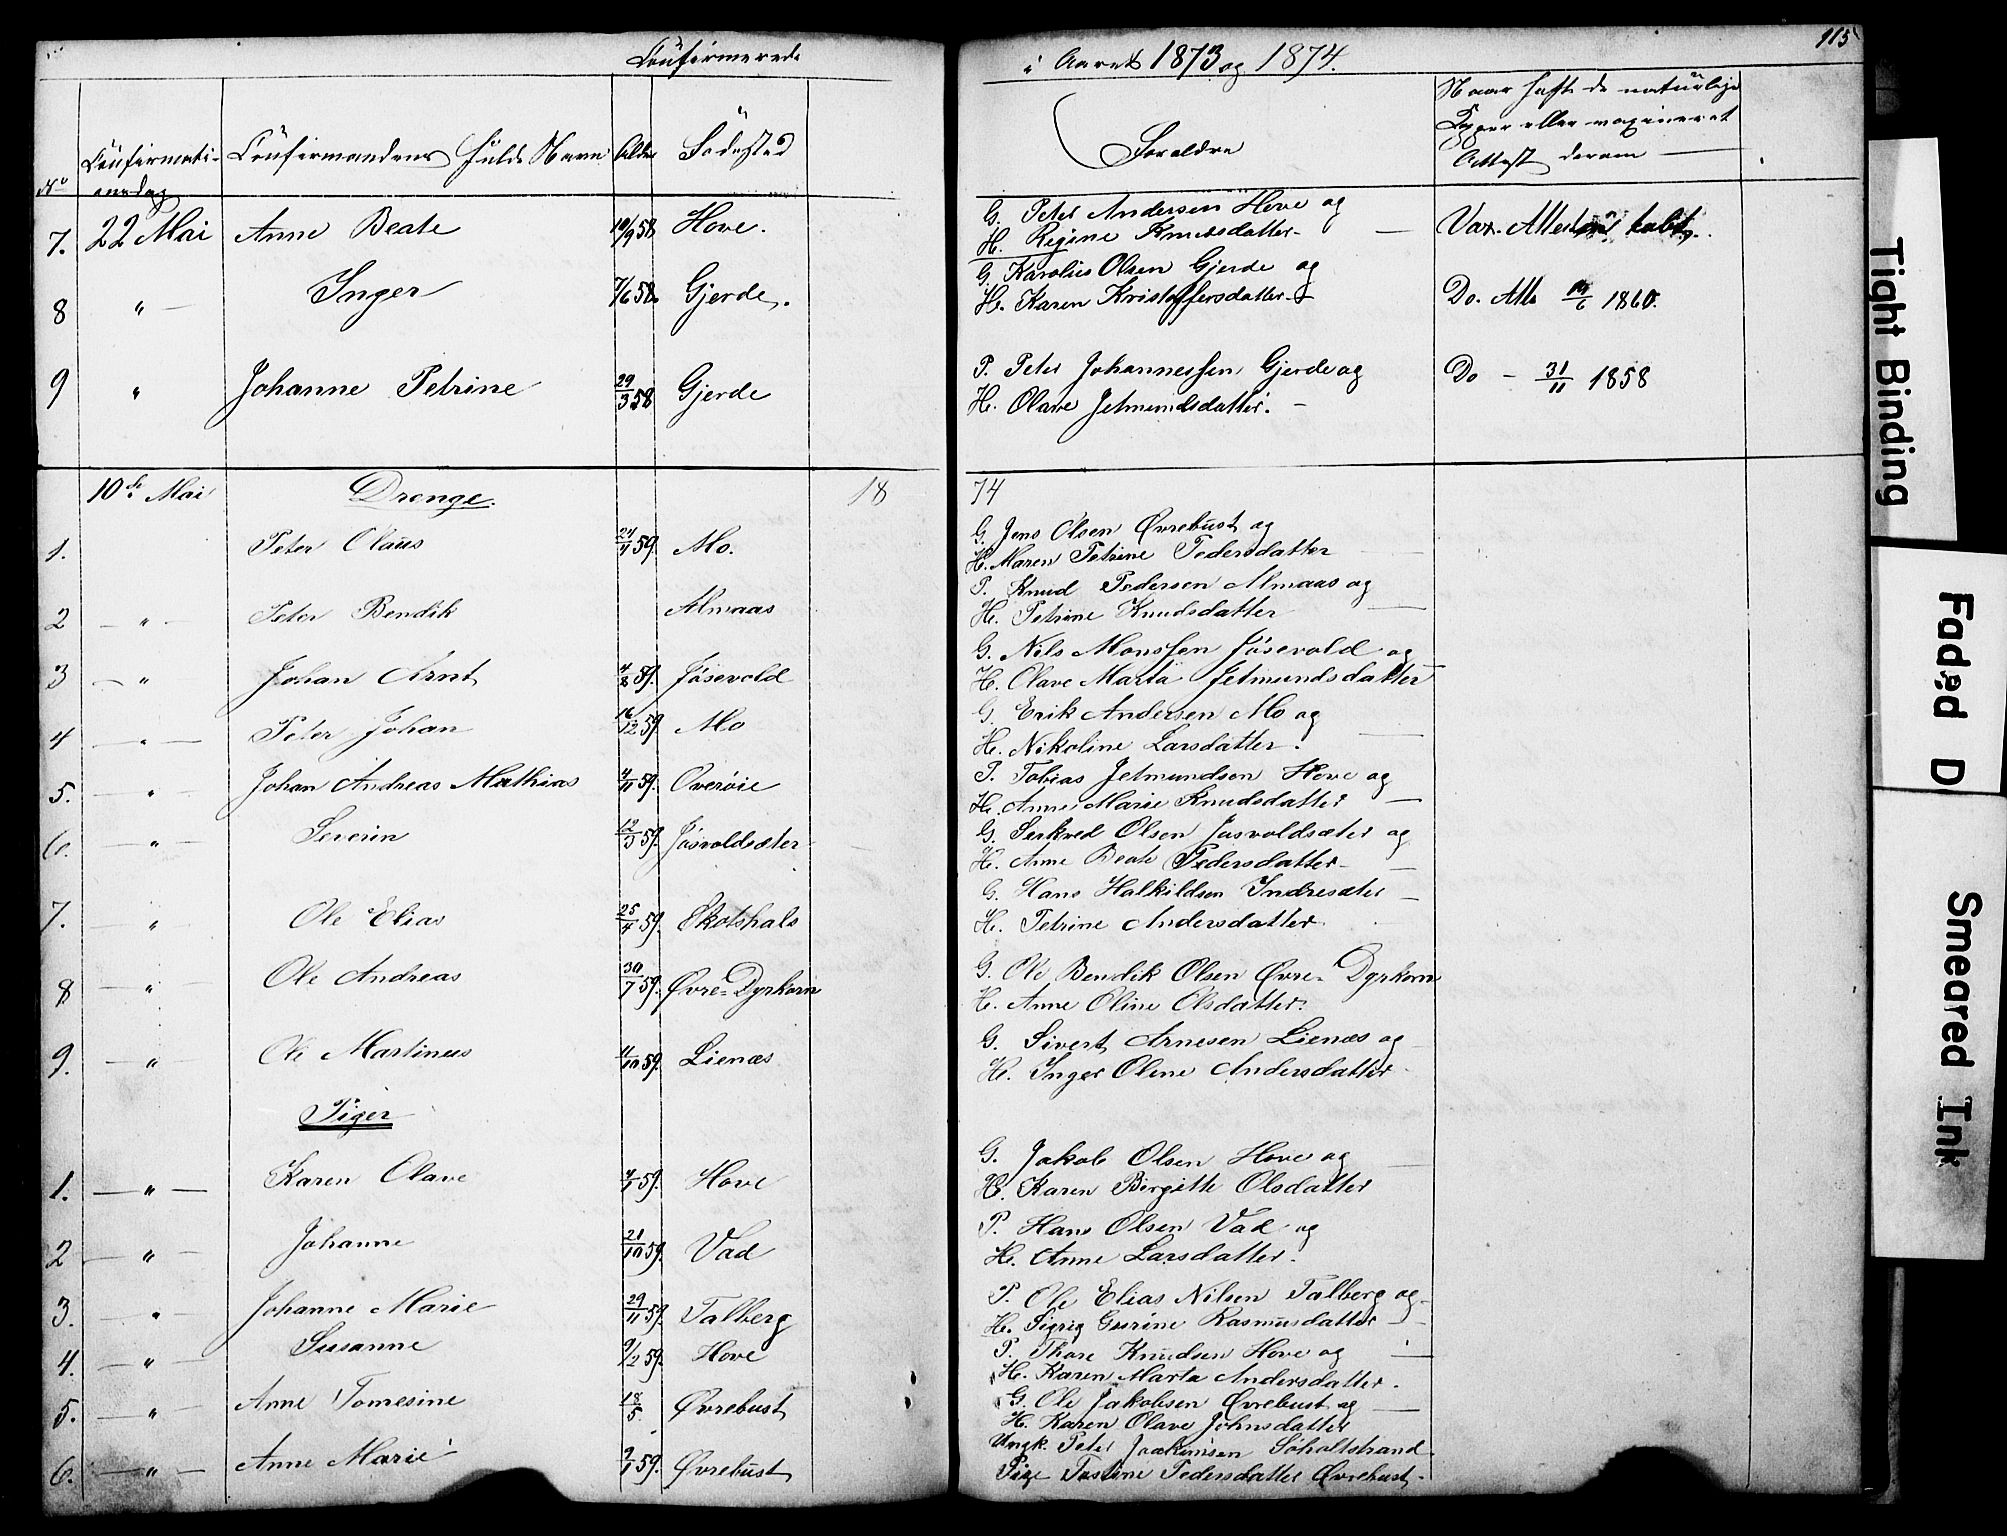 Confirmerede
i Aaret 1873 og 1874.
115
No
Confirmations-
dag
Confirmandens fulde Navn
Alder
Fødested
Forældre
Naar havt de naturlige
Kopper eller vaxineret
Attest derom
7. 22 Mai Anne Beate 10/9 58 Hove. G. Peter Andersen Hove og
H. Regine Knudsdatter Vax. Attesten tabt.
8 " Inger 7/6 58. Gjerde. G. Karolius Olsen Gjerde og
H. Karen Kristoffersdatter Do. Att. 1860.
9 " Johanne Petrine 29/3 58 Gjerde P. Peter Johannessen Gjerde og
H. Olave Jetmundsdatter. Do - 31/11 1858
10de Mai Drenge. 18 74
1. Peter Olaus 59. Mo. G. Jens Olsen Øvrebust og
H. Maren Petrine Pedersdatter
2 " Peter Bendik Almaas P. Knud Pedersen Almaas og
H. Petrine Knudsdatter
3 " Johan Arnt 4/8 59. Jösevold G. Nils Monssen Jösevold og
H. Olave Marta Jetmundsdatter
4 " Peter Johan 16/12 59. Mo G. Erik Andersen Mo og
H. Nikoline Larsdatter.
5. " Johan Andreas Mathias 4/11 59. Overöie P. Tobias Jetmundsen Hove og
H. Anne Marie Knudsdatter
6. " Severin 12/3 59. Jösvoldsæter G. Serkved Olsen Jusvoldsæter og
H. Anne Beate Pedersdatter
7. " Ole Elias 25/4 59. Skotshals G. Hans Halkildsen Indresæter
H. Petrine Andersdatter
8 " Ole Andreas 30/7 59. Øvre-Dyrkorn G. Ole Bendik Olsen Øvre-Dyrkorn
H. Anne Oline Olsdatter.
9. " Ole Martinus 11/10 59. Lienæs G. Sivert Arnesen Lienæs og
H. Inger Oline Andersdatter
Piger
1. " Karen Olave 59. Hove G. Jakob Olsen Hove og
H. Karen Birgitte Olsdatter
2 " Johanne 21/10 59. Vad P. Hans Olsen Vad og
H. Anne Larsdatter.
3. " Johanne Marie 29/11 59. Talberg P. Ole Elias Nilsen Talberg og
H. Sigrig Gurine Rasmusdatter
4. " Susanne 9/12 59. Hove P. Thore Knudsen Hove og
H. Karen Marta Andersdatter.
5. " Anne Tomesine 18/5 Øvrebust G. Ole Jakobsen Øvrebust og
H. Karen Olave Johnsdatter
6. " Anne Marie 2/1 59. Øvrebust Ungk. Peter Joakimsen Söholtstrand
Pige Tostine Pedersdatter Øvrebust.
Tight Binding
Faded
Smeared Ink